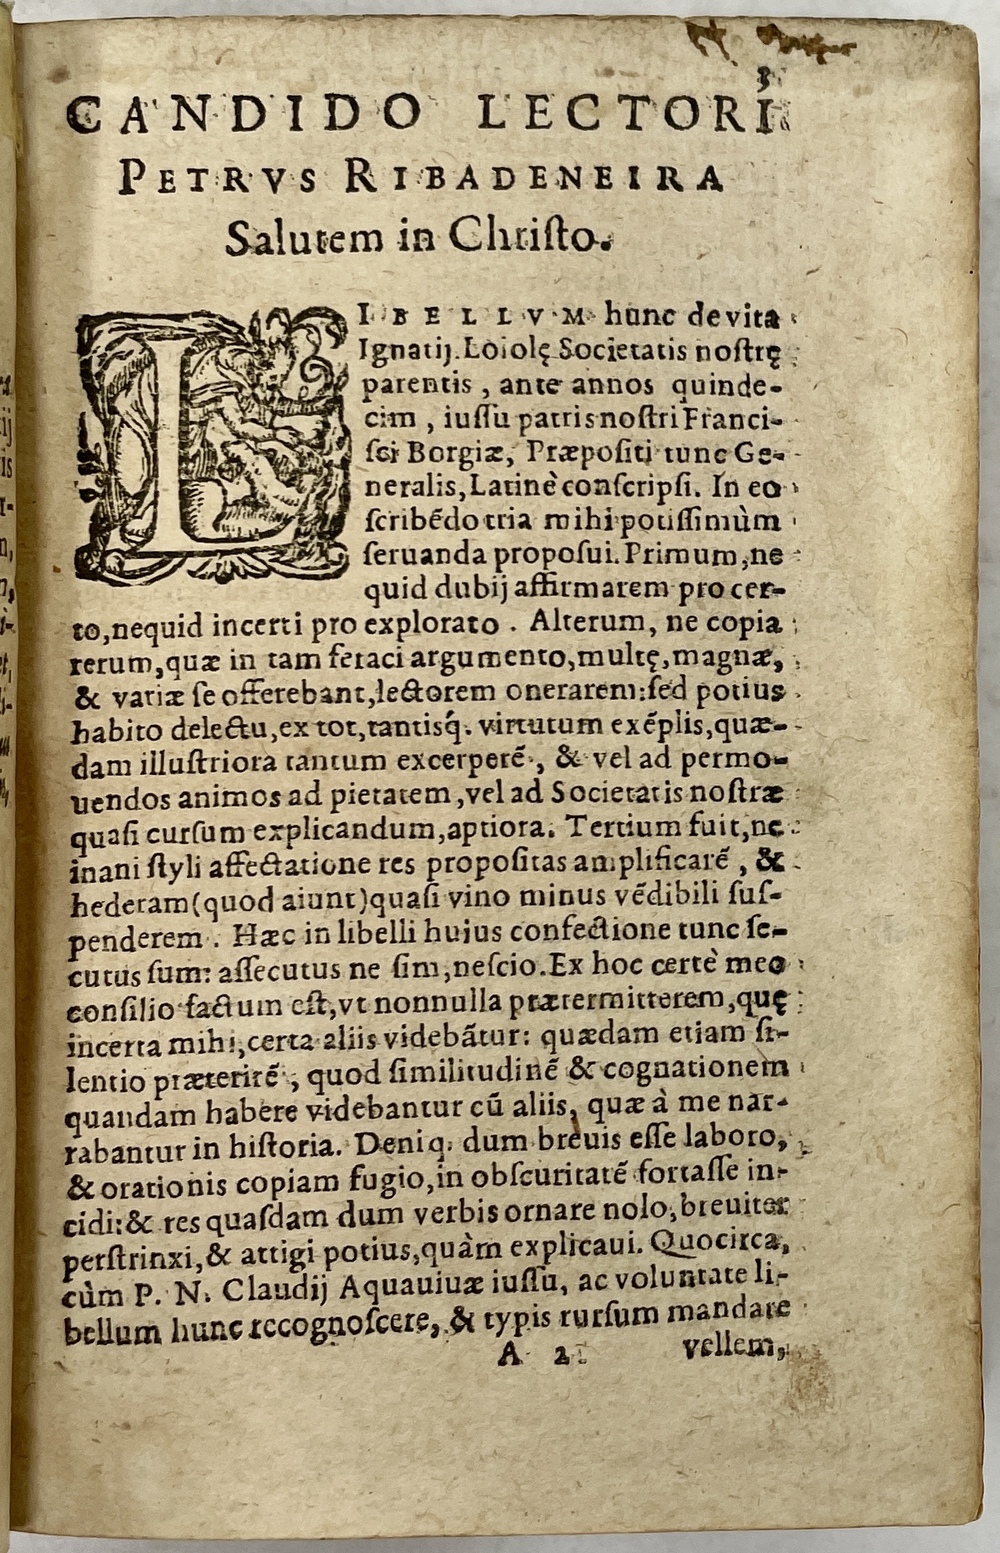 3
CANDIDO LECTORI
PETRVS RIBADENEIRA
Salutem in Chriſto.
LIBELLVM hunc de vita
Ignatij Loiolę Societatis noſtrę
parentis, ante annos quinde-
cim, iuſſu patris noſtri Franci-
ſci Borgiæ, Præpoſiti tunc Ge-
neralis, Latinè conſcripſi. In eo
ſcribẽdo tria mihi potiſſimùm
ſeruanda propoſui. Primum, ne
quid dubij affirmarem pro cer-
to, nequid incerti pro explorato. Alterum, ne copia
rerum, quæ in tam feraci argumento, multę, magnæ,
& variæ ſe offerebant, lectorem onerarem: ſed potius
habito delectu, ex tot, tantisq́. virtutum exẽplis, quæ-
dam illuſtriora tantum excerperẽ, & vel ad permo-
uendos animos ad pietatem, vel ad Societatis noſtræ
quaſi curſum explicandum, aptiora. Tertium fuit, ne
inani ſtyli affectatione res propoſitas amplificarẽ, &
hederam (quod aiunt) quaſi vino minus vẽdibili ſuſ-
penderem. Hæc in libelli huius confectione tunc ſe-
cutus ſum: aſſecutus ne ſim, neſcio. Ex hoc certè meo
conſilio factum eſt, vt nonnulla prætermitterem, quę
incerta mihi, certa aliis videbãtur: quædam etiam ſi-
lentio præterirẽ, quod ſimilitudinẽ & cognationem
quandam habere videbantur cũ aliis, quæ à me nar-
rabantur in hiſtoria. Deniq. dum breuis eſſe laboro,
& orationis copiam fugio, in obſcuritatẽ fortaſſe in-
cidi: & res quaſdam dum verbis ornare nolo, breuiter
perſtrinxi, & attigi potius, quàm explicaui. Quocirca,
cùm P. N. Claudij Aquauiuæ iuſſu, ac voluntate li-
bellum hunc recognoſcere, & typis rurſum mandare
A 2 vellem,